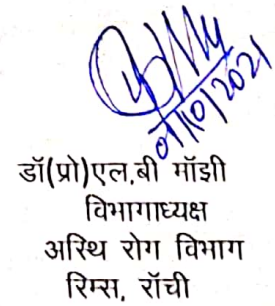 01/10/2021
डॉ(प्रो)एल.बी मॉझी
विभागाध्यक्ष
अस्थि रोग विभाग
रिम्स, रॉची